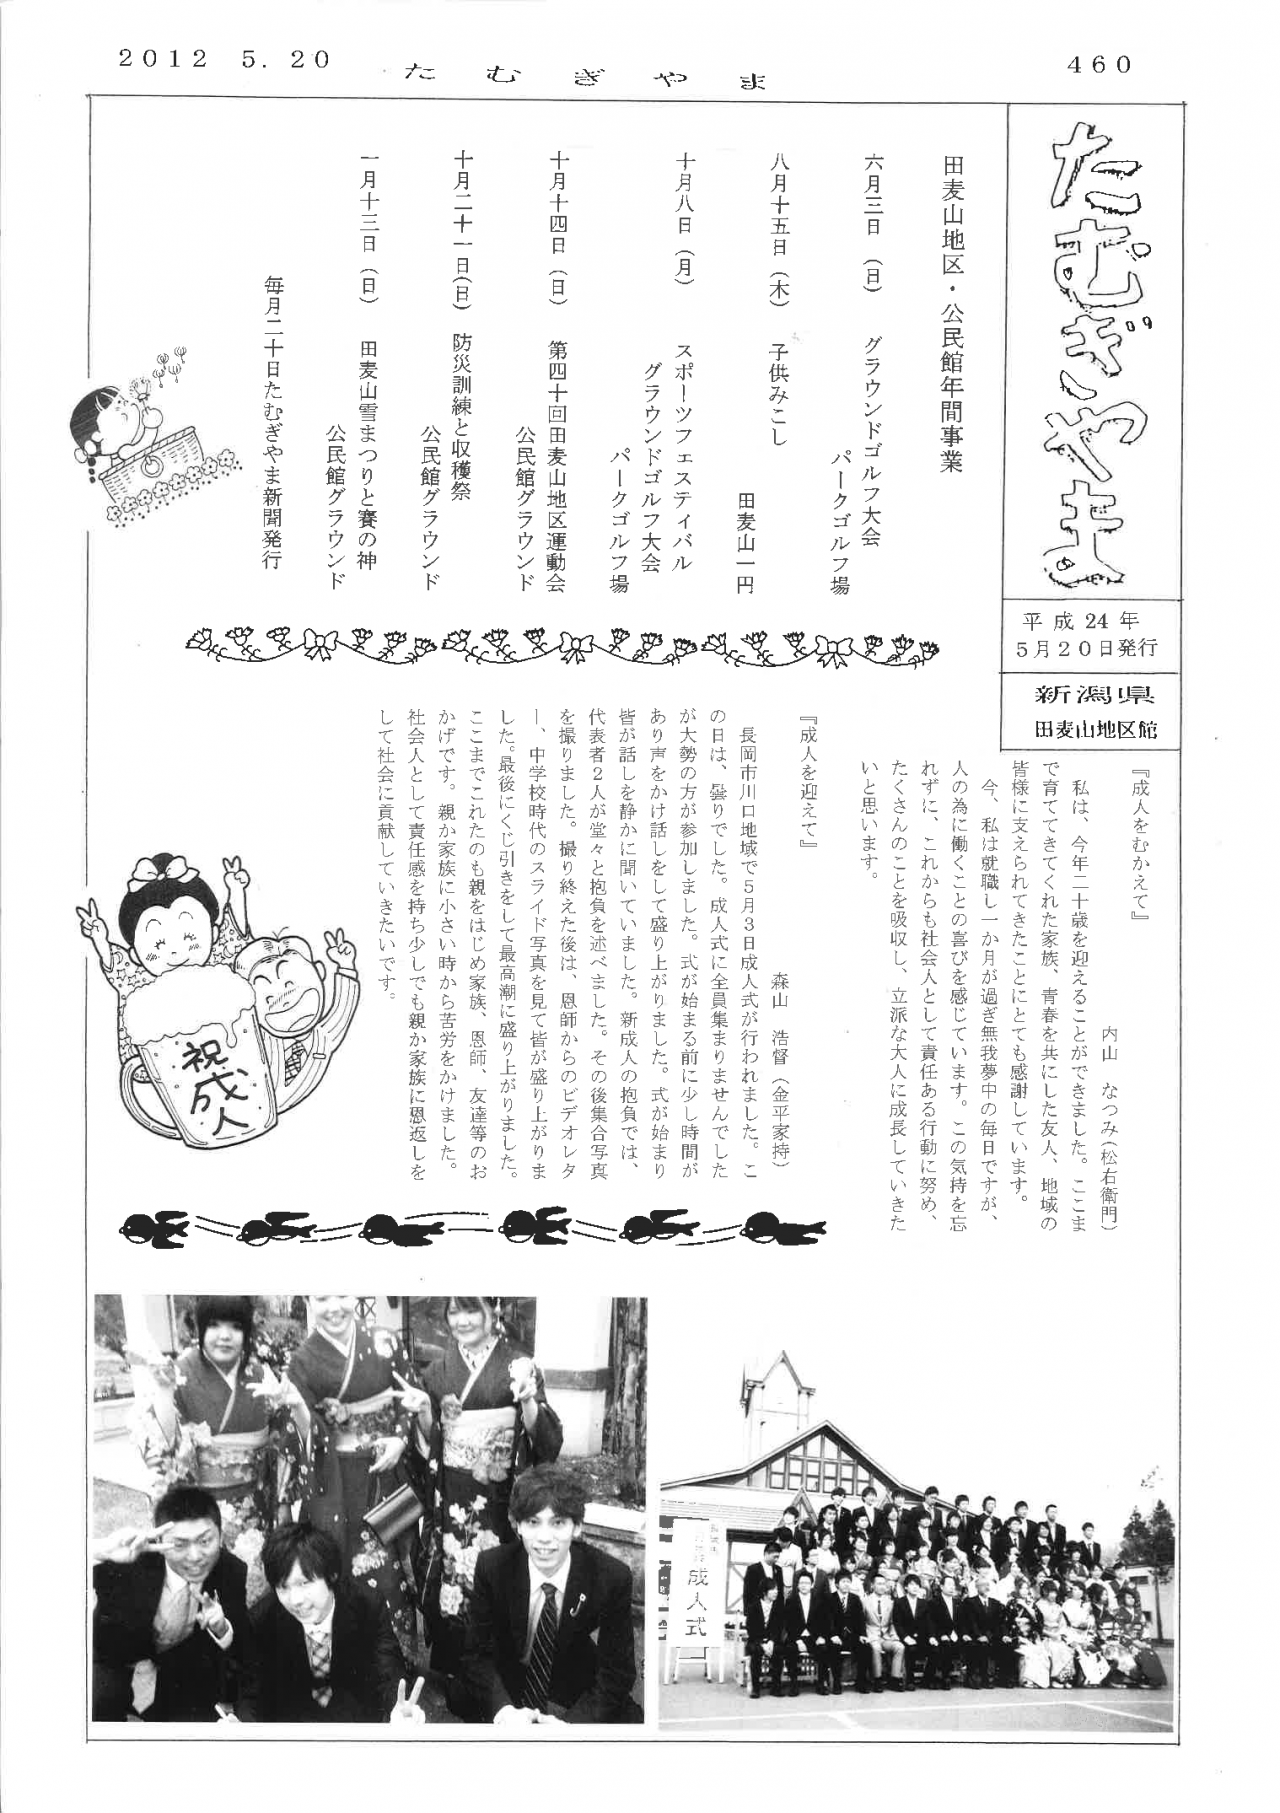 2012 5.20
たむぎやま
460
たむぎやま
平成24年
5月20日発行
新潟県
田麦山地区館
田麦山地区・公民館年間事業
六月三日（日）　グラウンドゴルフ大会
パークゴルフ場
八月十五日（木）　子供みこし
田麦山一円
十月八日（月）　スポーツフェスティバル
グラウンドゴルフ大会
パークゴルフ場
十月十四日（日）　第四十回田麦山地区運動会
公民館グラウンド
十月二十一日(日)　防災訓練と収穫祭
公民館グラウンド
一月十三日（日）　田麦山雪まつりと賽の神
公民館グラウンド
毎月二十日たむぎやま新聞発行
『成人をむかえて』
内山　なつみ(松右衛門)
私は、今年二十歳を迎えることができました。ここま
で育ててきてくれた家族、青春を共にした友人、地域の
皆様に支えられてきたことにとても感謝しています。
今、私は就職し一か月が過ぎ無我夢中の毎日ですが、
人の為に働くことの喜びを感じています。この気持を忘
れずに、これからも社会人として責任ある行動に努め、
たくさんのことを吸収し、立派な大人に成長していきた
いと思います。
『成人を迎えて』
森山　浩督（金平家持）
長岡市川口地域で５月３日成人式が行われました。こ
の日は、曇りでした。成人式に全員集まりませんでした
が大勢の方が参加しました。式が始まる前に少し時間が
あり声をかけ話しをして盛り上がりました。式が始まり
皆が話しを静かに聞いていました。新成人の抱負では、
代表者２人が堂々と抱負を述べました。その後集合写真
を撮りました。撮り終えた後は、恩師からのビデオレタ
ー、中学校時代のスライド写真を見て皆が盛り上がりま
した。最後にくじ引きをして最高潮に盛り上がりました。
ここまでこれたのも親をはじめ家族、恩師、友達等のお
かげです。親か家族に小さい時から苦労をかけました。
社会人として責任感を持ち少しでも親か家族に恩返しを
して社会に貢献していきたいです。
祝
成
人
成人式